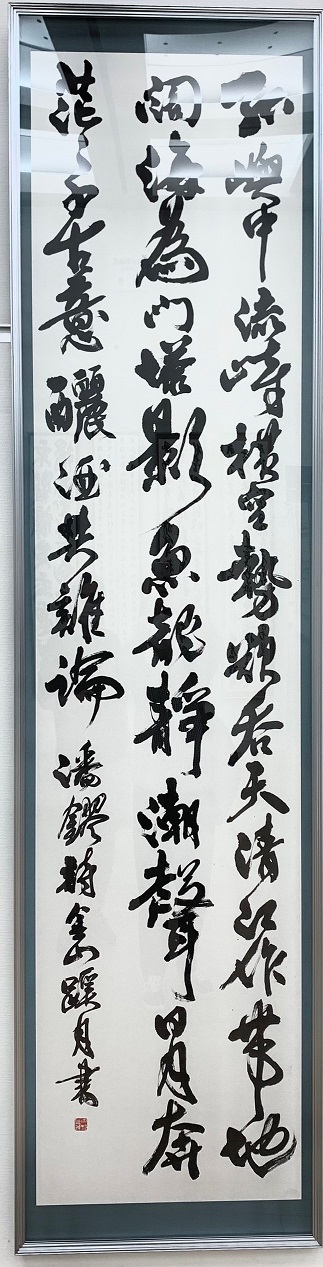 孤嶼中流峙橫空勢欲吞天清江作帶地
闊海為門塔影魚龍靜潮聲日月奔
茫々千古意釃酒共誰論 潘鏐詩金山 蹊月書